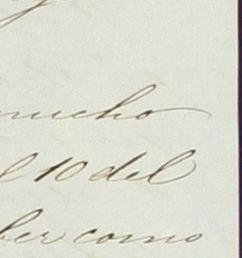 mucho
el 10 del
ber como